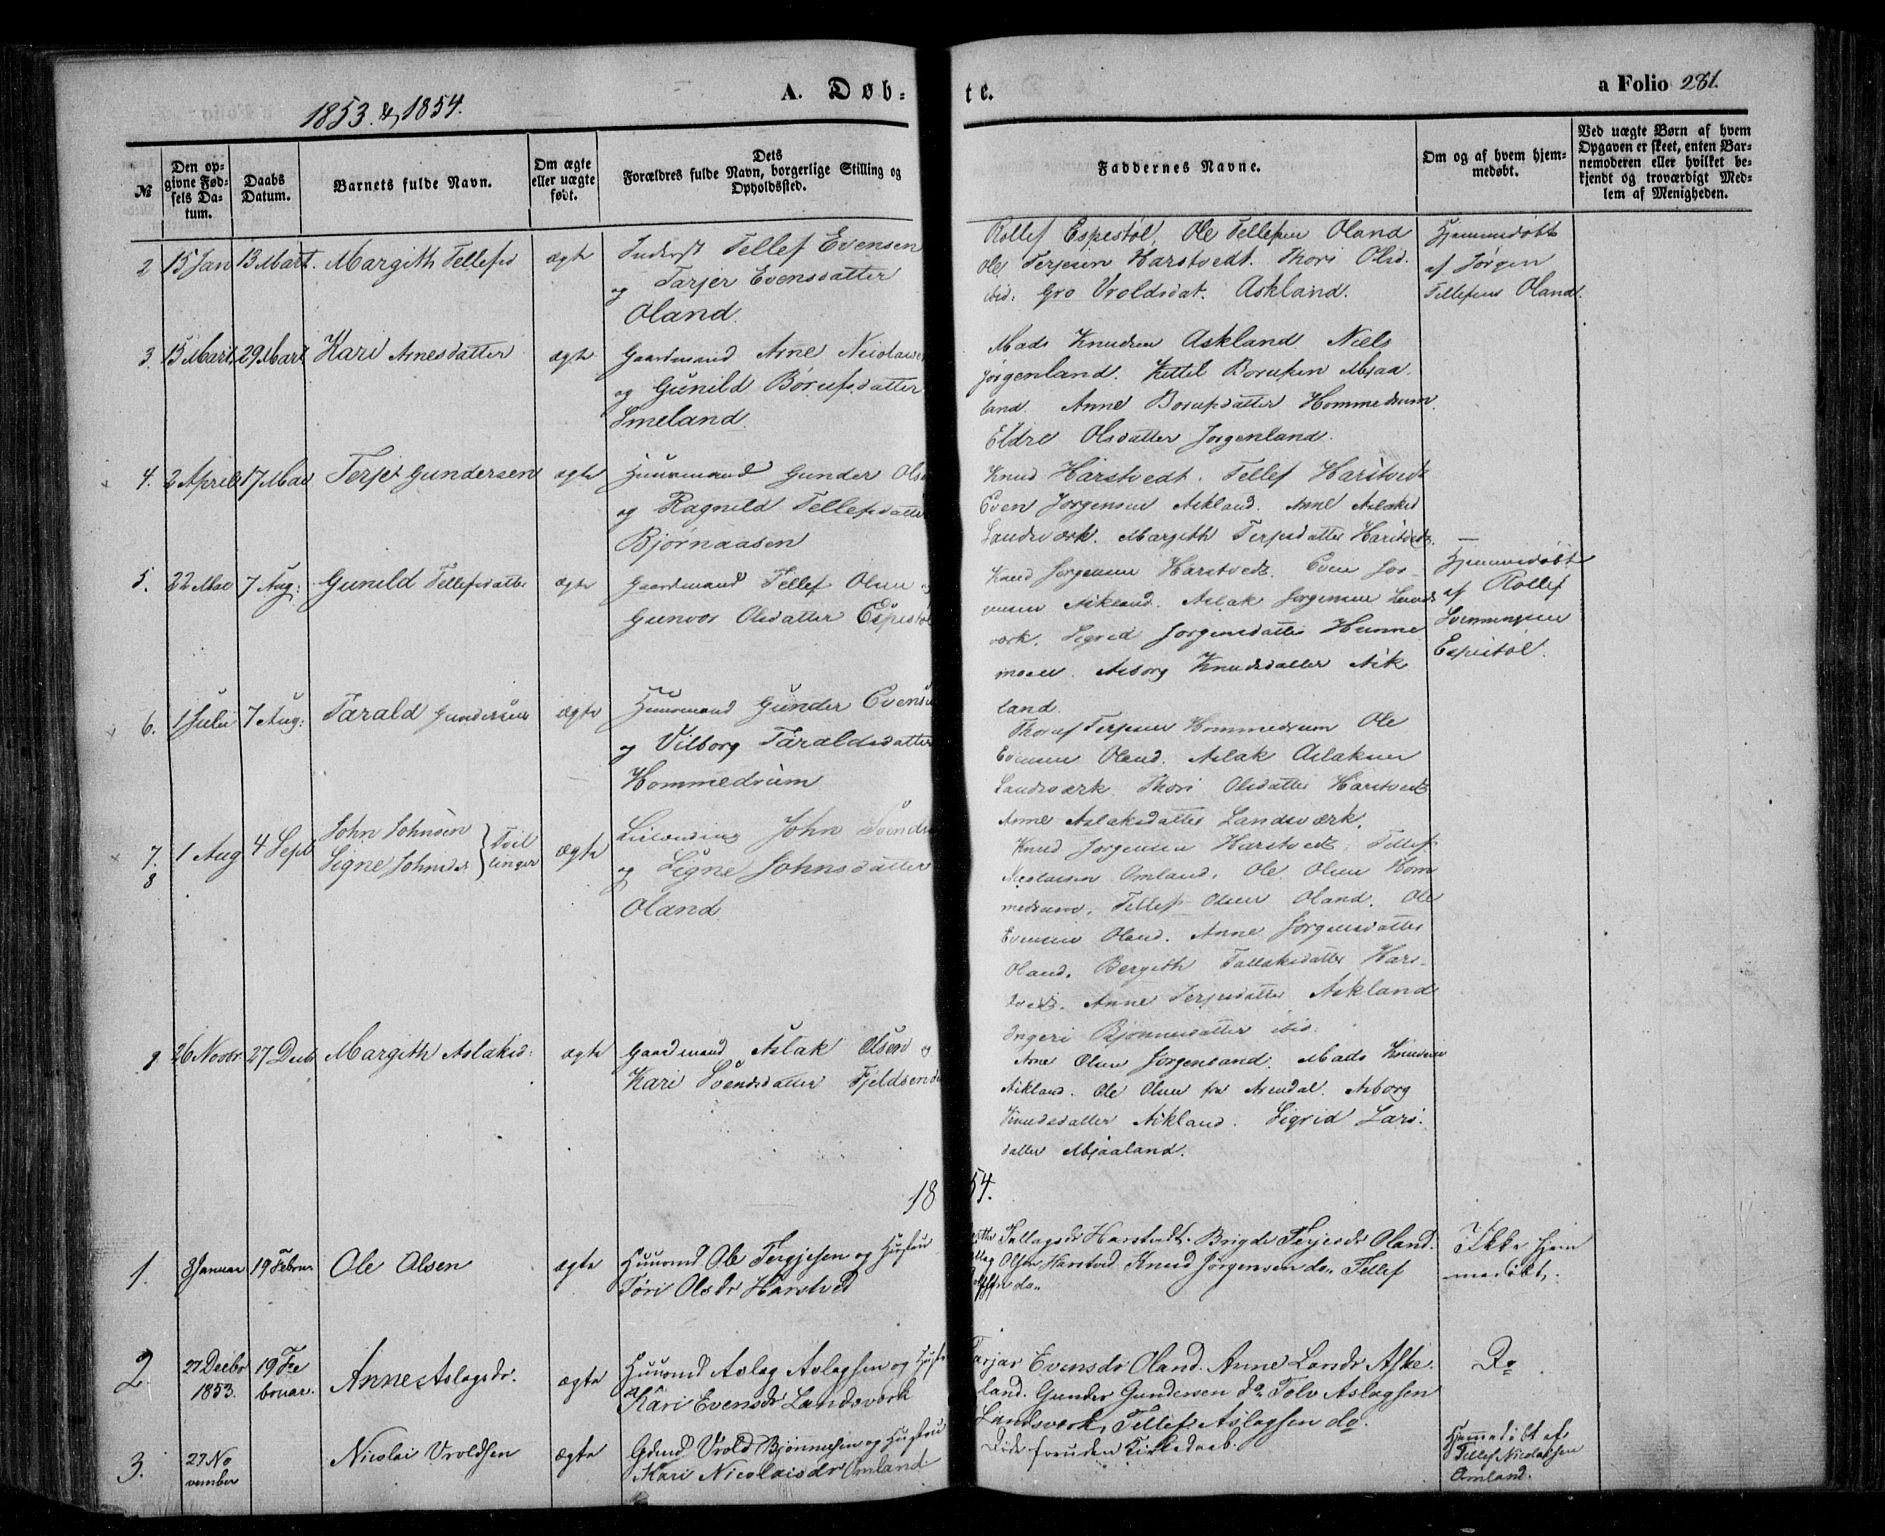 1853 & 1854.
A. Døb-
te.
a Folio 281.
№
Den op-
givne Fød-
sels Da-
tum.
Daabs
Datum.
Barnets fulde Navn.
Om ægte
eller uægte
født.
Dets
Forældres fulde Navn, borgerlige Stilling og
Opholdssted.
Faddernes Navne.
Om og af hvem hjem-
medøbt.
Ved uægte Børn af hvem
Opgaven er skeet, enten Bar-
nemoderen eller hvilket be-
kjendt og troværdigt Med-
lem af Menigheden.
2 15 Jan 13 Mart. Margith Tellefsd ægte
Inderst Tellef Evensen
og Tarjer Evensdatter
Oland.
Rollef Espestøl, Ole Tellefsen Oland
Ole Terjesen Harstvedt. Thori Olsd.
ibid: Gro Vroldsdat. Askland.
Hjemmedøbt
af Jørgen
Tellefsen Oland.
3. 15 Mart 29 Mart Kari Arnesdatter ægte
Gaardmand Arne Nicolaisen
og Gunild Børufsdatter
Smeland.
Mads Knudsen Askland Niels
Jørgenland. Kittel Borufsen Mjaa
land. Anne Borufsdatter Hommedrum.
Eldre Olsdatter Jørgenland.
4. 2 April 17 Mai Terjer Gundersen ægte
Huusmand Gunder Ols
og Ragnild Tellefsdatter
Bjørnaasen
Knud Harstvedt. Tellef Harstvedt
Even Jørgensen Askland. Anne Aslaksd
Landsværk. Margith Terjesdatter Harstvedt.
5. 22 Mai 7 Aug: Gunild Tellefsdatter ægte
Gaardmand Tellef Olsen
Gunvor Olsdatter Espestøl
Knud Jørgensen Harstvedt. Even Jør-
gensen Askland. Aslak Jørgensen Lands
værk. Sigrid Jørgensdatter Humme
moen. Asborg Knudsdatter Ask
land.
Hjemmedøbt
af Rollef
Svenningsen
Espestøl.
6. 1 Juli 7 Aug: Tarald Gundersen ægte
Huusmand Gunder Evensen
og Vilborg Taraldsdatter
Hommedrum
Thoruf Terjesen Hommedrum Ole
Evensen Oland. Aslak Aslaksen
Landsværk Thori Olsdatter Harstvedt
Anne Aslaksdatter Landsværk.
7.
8 1 Aug 4 Sept
John Johnsen
Signe Johnsdr } Tvil
linger
ægte
John Svends
og Signe Johnsdatter
Oland
Knud Jørgensen Harstvedt. Tellef
Nicolaisen Omland. Ole Olsen Hom
medrum. Tellef Olsen Oland. Ole
Evensen Oland. Anne Jørgensdatter
Oland. Bergith Tallaksdatter Hars-
tvedt. Anne Terjesdatter Askland
Ingeri Bjønnesdatter ibid.
9 26 Novbr 27 Decbr Margith Aslaksd: ægte
Gaardmand Aslak Olsen og
Kari Svendsdatter Fjeldsend
Arne Olsen Jørgenland. Mads Knudsen
Askland. Ole Olsen fra Arendal. Asborg
Knudsdatter Askland. Sigrid Lars-
datter Mjaaland.
1854.
1. 8 Januar 19 Februar Ole Olsen ægte
Huusmd Ole Tergjesen og Hustru
Tøri Olsdr Harstved
Tallagsdr Harstvedt. Brigde Terjesdr Oland.
Olsen Harstved. Knud Jørgensen do. Tellef
do.
Ikke hjem
medøbt.
2. 27 Decbr
1853. 19 Fe
bruar. Anne Aslagsdr. ægte
Huusmd Aslag Aslagsen og Hustru
Kari Evensdr Landsværk
Tarjar Evensdr Oland. Anne Larsdr Aske
land. Gunder Gundersen do Tolv Aslagsen
Landsværk, Tellef Aslagsen do.
Do
3. 27 No
vember Nicolai Vroldsen ægte
Gdmd Vrold Bjønnesen og Hustru
Kari Nicolaisdr Omland
Døde foruden Kirkedaab.
Hjemmedøbt af
Tellef Nicolaisen
Omland.